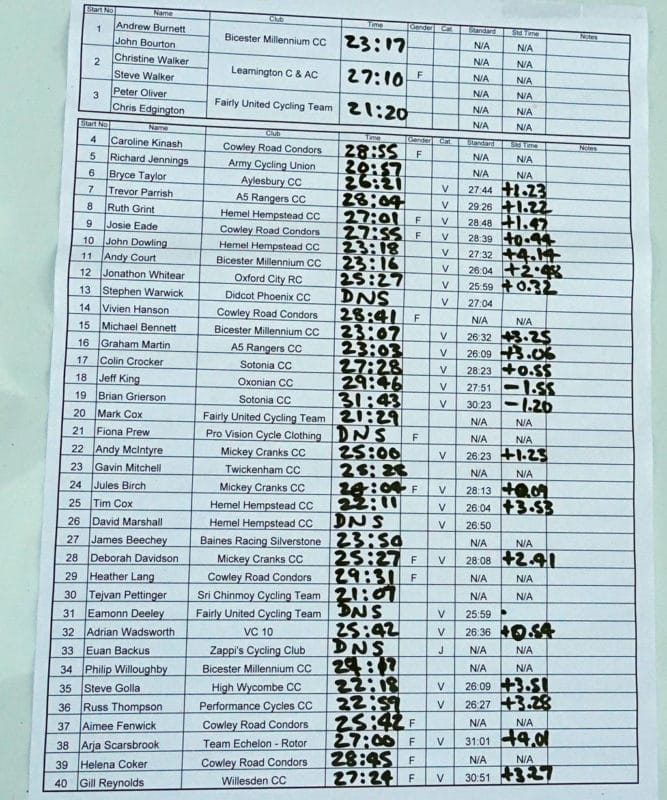 Start No Name Club Time Gender Cat. Standard Std Time Notes
1 Andrew Burnett Bicester Millennium CC 23:17 N/A N/A
John Bourton N/A N/A
2 Christine Walker Leamington C & AC 27:10 F N/A N/A
Steve Walker N/A N/A
3 Peter Oliver Fairly United Cycling Team 21:20 N/A N/A
Chris Edgington N/A N/A
Start No Name Club Time Gender Cat. Standard Std Time Notes
4 Caroline Kinash Cowley Road Condors 28:55 F N/A N/A
5 Richard Jennings Army Cycling Union 20:57 N/A N/A
6 Bryce Taylor Aylesbury CC 26:21 V 27:44 +1.23
7 Trevor Parrish A5 Rangers CC 28:04 V 29:26 +1.22
8 Ruth Grint Hemel Hempstead CC 27:01 F V 28:48 +1.47
9 Josie Eade Cowley Road Condors 27:55 F V 28:39 +0.44
10 John Dowling Hemel Hempstead CC 23:18 V 27:32 +4.14
11 Andy Court Bicester Millennium CC 23:16 V 26:04 +2.48
12 Jonathon Whitear Oxford City RC 25:27 V 25:59 +0.32
13 Stephen Warwick Didcot Phoenix CC DNS V 27:04
14 Vivien Hanson Cowley Road Condors 28:41 F N/A N/A
15 Michael Bennett Bicester Millennium CC 23:07 V 26:32 +3.25
16 Graham Martin A5 Rangers CC 23:03 V 26:09 +3.06
17 Colin Crocker Sotonia CC 27:28 V 28:23 +0.55
18 Jeff King Oxonian CC 29:46 V 27:51 -1.55
19 Brian Grierson Sotonia CC 31:43 V 30:23 -1.20
20 Mark Cox Fairly United Cycling Team 21:29 N/A N/A
21 Fiona Prew Pro Vision Cycle Clothing DNS F N/A N/A
22 Andy McIntyre Mickey Cranks CC 25:00 V 26:23 +1.23
23 Gavin Mitchell Twickenham CC N/A N/A
24 Jules Birch Mickey Cranks CC F V 28:13 +0.09
25 Tim Cox Hemel Hempstead CC 22:11 V 26:04 +3.53
26 David Marshall Hemel Hempstead CC DNS V 26:50
27 James Beechey Baines Racing Silverstone 23:50 N/A N/A
28 Deborah Davidson Mickey Cranks CC 25:27 F V 28:08 +2.41
29 Heather Lang Cowley Road Condors 29:31 F N/A N/A
30 Tejvan Pettinger Sri Chinmoy Cycling Team 21:07 N/A N/A
31 Eamonn Deeley Fairly United Cycling Team DNS V 25:59
32 Adrian Wadsworth VC 10 25:42 V 26:36 +0.54
33 Euan Backus Zappi's Cycling Club DNS J N/A N/A
34 Philip Willoughby Bicester Millennium CC 24:17 N/A N/A
35 Steve Golla High Wycombe CC 22:18 V 26:09 +3.51
36 Russ Thompson Performance Cycles CC 22:59 V 26:27 +3.28
37 Aimee Fenwick Cowley Road Condors 25:42 F N/A N/A
38 Arja Scarsbrook Team Echelon - Rotor 27:00 F V 31:01 +4.01
39 Helena Coker Cowley Road Condors 28:45 F N/A N/A
40 Gill Reynolds Willesden CC 27:24 F V 30:51 +3.27